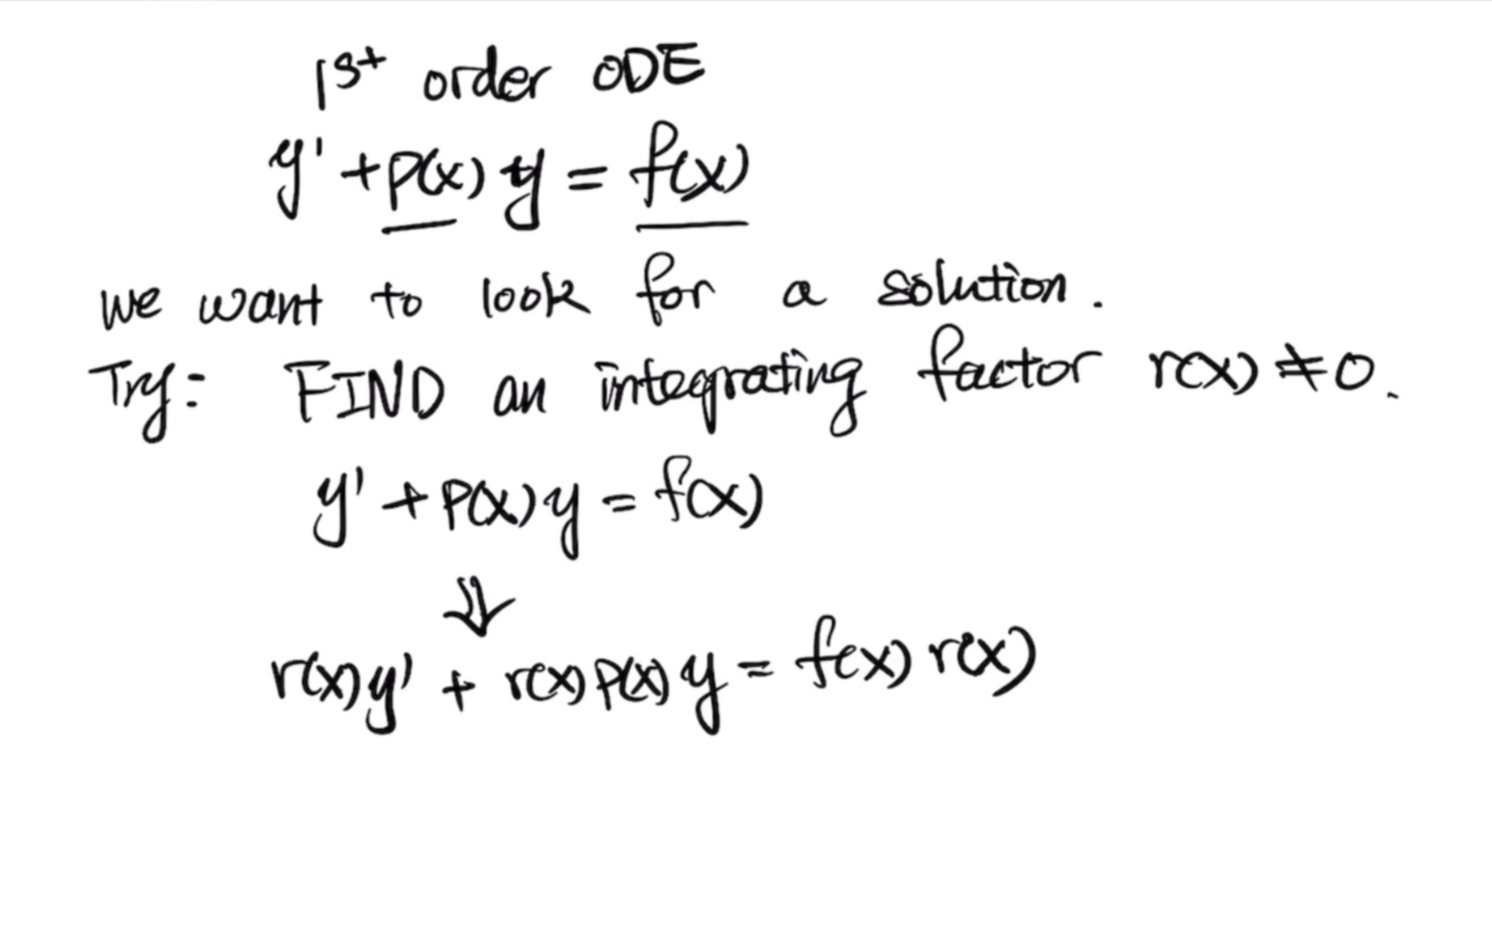 1st order ODE
y' + p(x) y = f(x)
we want to look for a solution.
Try: FIND an integrating factor r(x) ≠ 0.
y' + p(x) y = f(x)
⇓
r(x) y' + r(x) p(x) y = f(x) r(x)